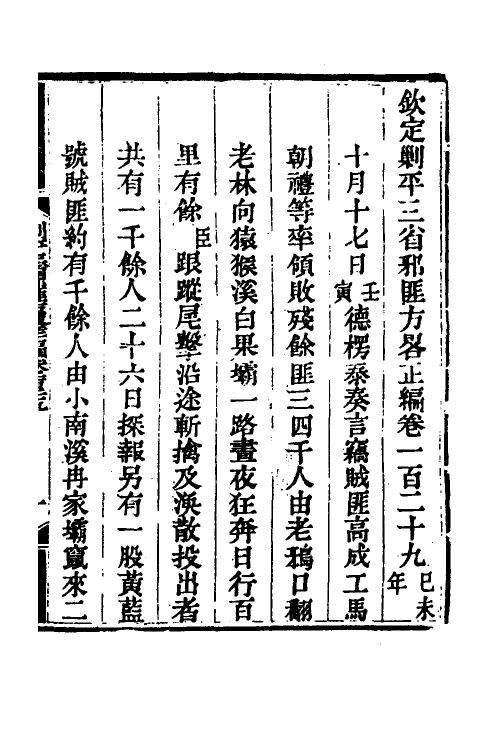 欽定剿平三省邪匪方畧正編卷一百二十九己未年
十月十七日壬寅德楞泰奏言竊賊匪高成工馬
朝禮等率領敗殘餘匪三四千人由老鴉口翻
老林向猿猴溪白果壩一路晝夜狂奔日行百
里有餘臣跟蹤尾擊沿途斬擒及渙散投出者
共有一千餘人二十六日探報另有一股黃藍
號賊匪約有千餘人由小南溪冉家壩竄來二